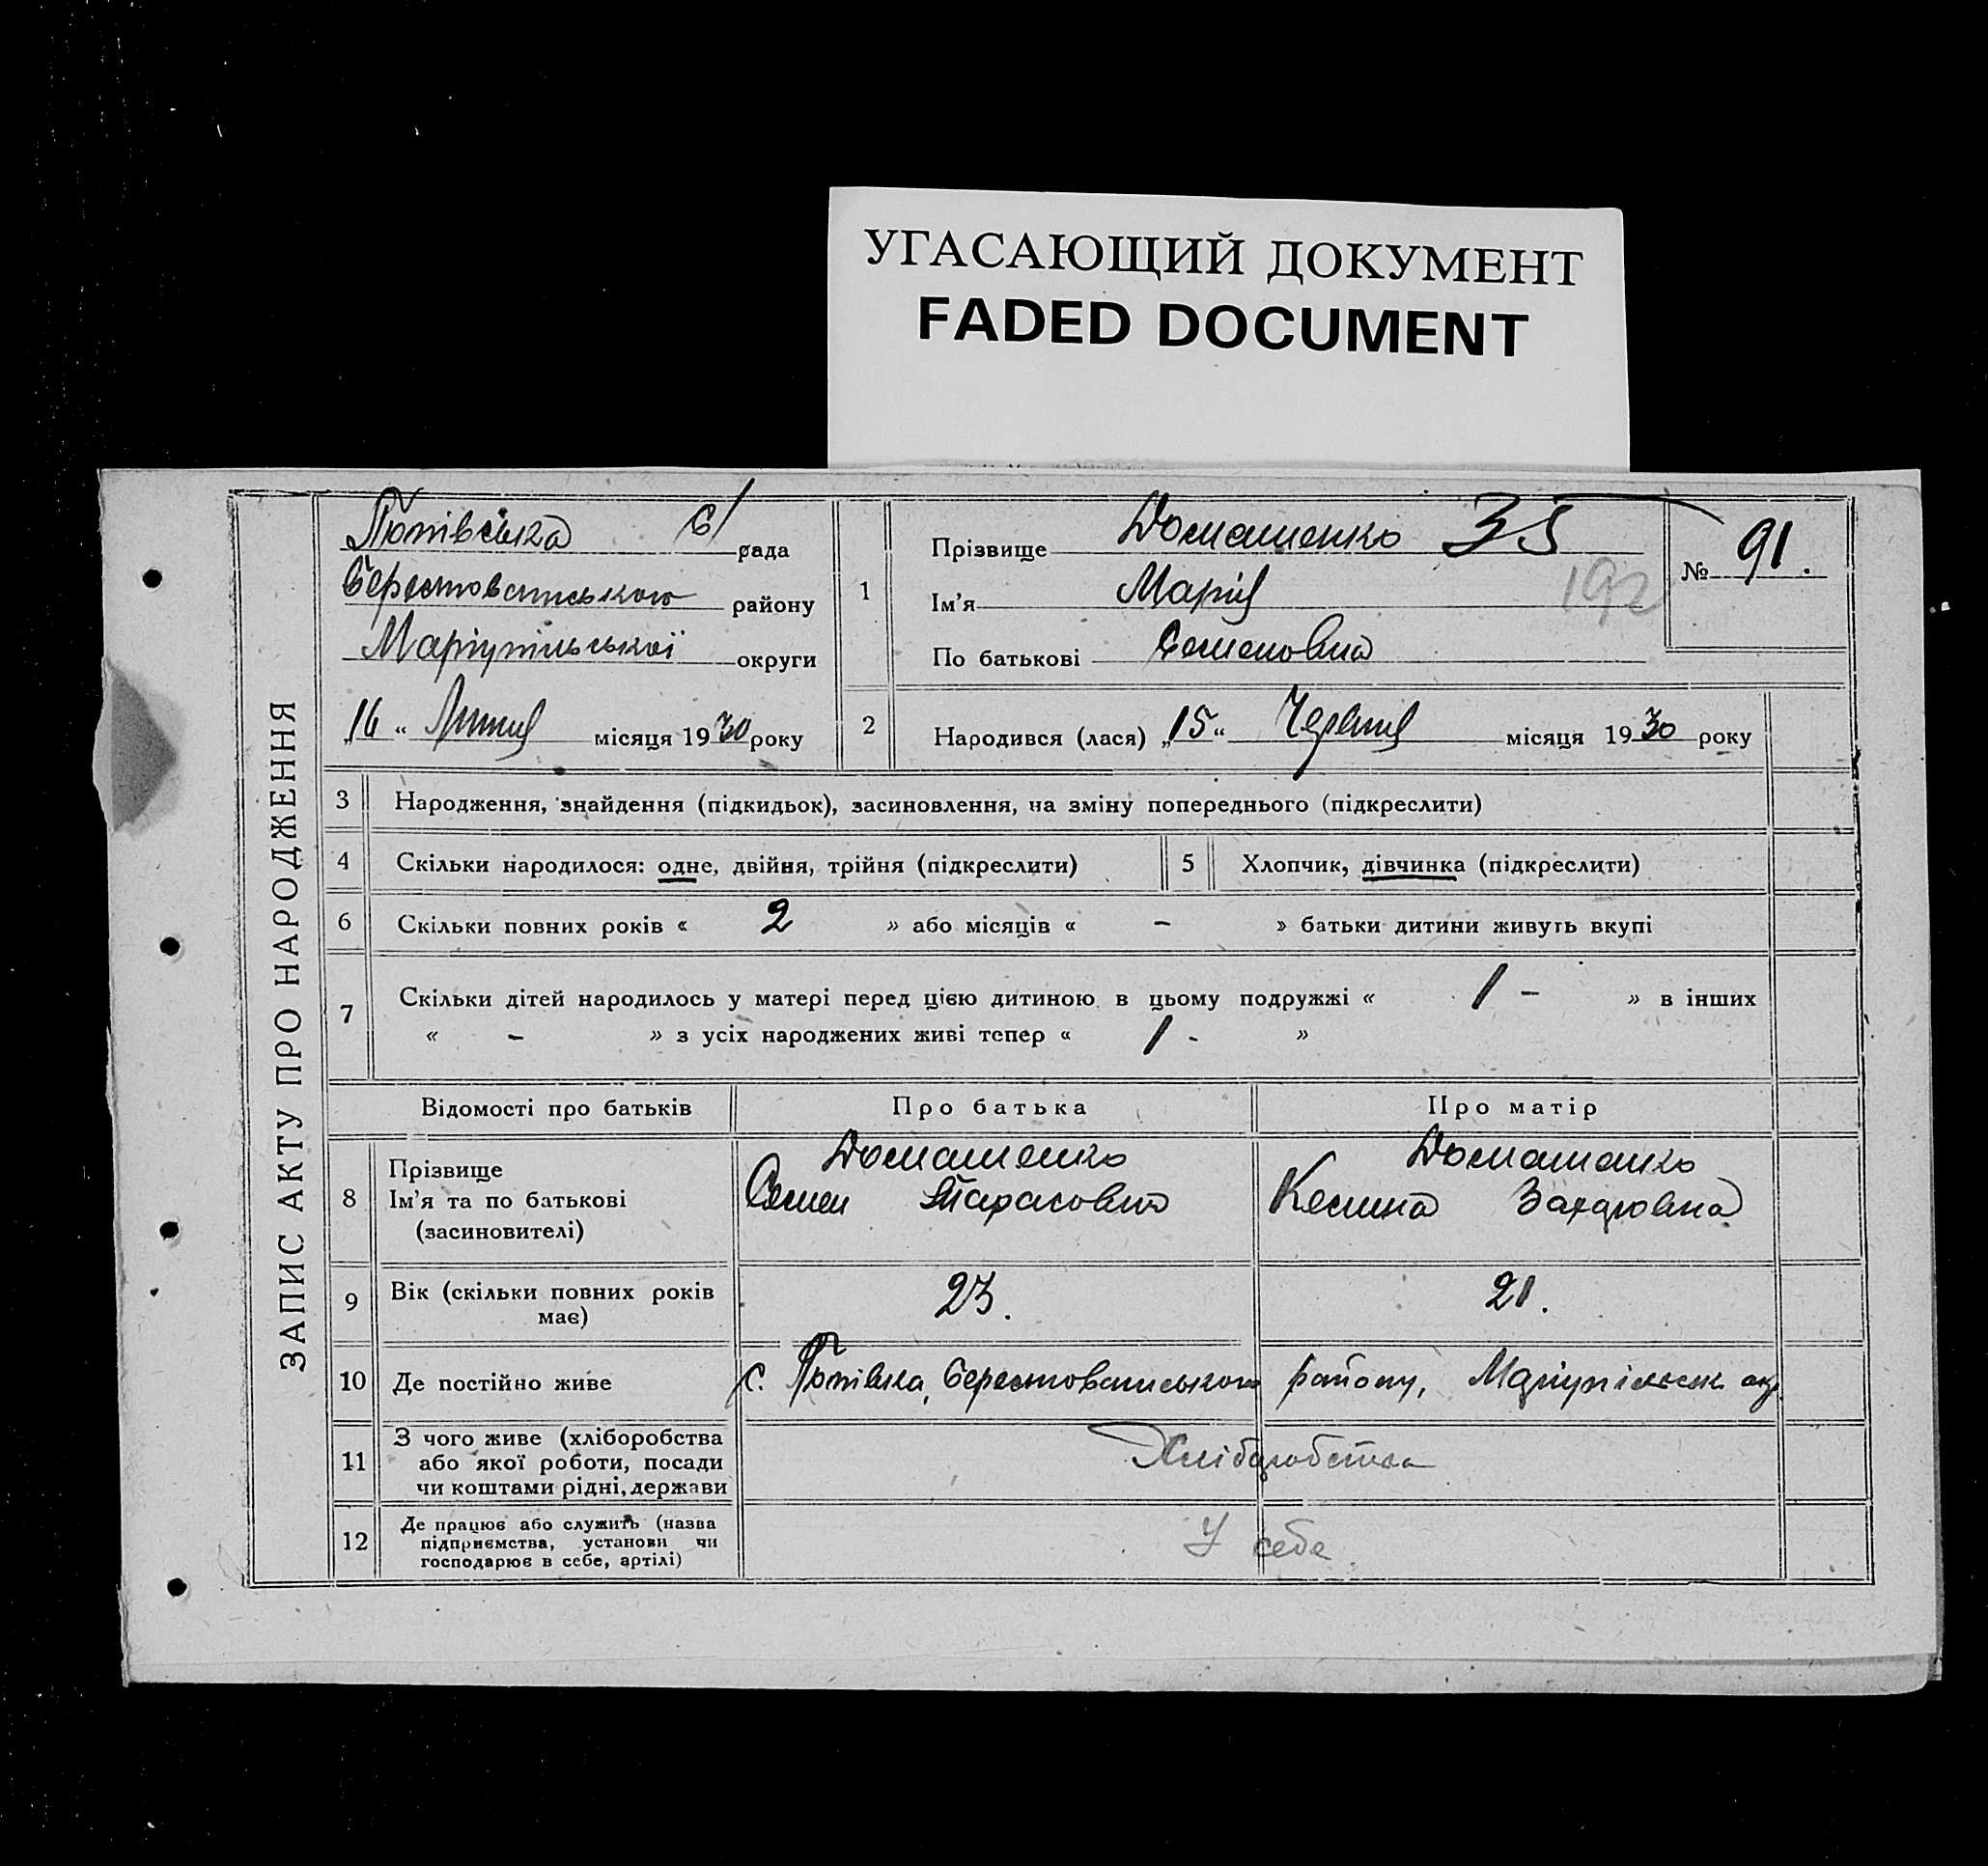 УГАСАЮЩИЙ ДОКУМЕНТ
FADED DOCUMENT
ЗАПИС АКТУ ПРО НАРОДЖЕННЯ
Попівська с/ рада
Берестоватського району
Маріупільської округи
„16“ Липня місяця 1930 року
1
Прізвище Домашенко 35
Ім'я Марія 192
По батькові Семеновна
№ 91.
2 Народився (лася) „15“ Червня місяця 1930 року
3 Народження, знайдення (підкидьок), засиновлення, на зміну попереднього (підкреслити)
4 Скільки народилося: одне, двійня, трійня (підкреслити) 5 Хлопчик, дівчинка (підкреслити)
6 Скільки повних років « 2 » або місяців « – » батьки дитини живуть вкупі
7 Скільки дітей народилось у матері перед цією дитиною в цьому подружжі « 1 – » в інших
« – » з усіх народжених живі тепер « 1 - »
Відомості про батьків Про батька Про матір
8 Прізвище Домашенко Домашенко
Ім'я та по батькові Семен Тарасович
(засновителі)
9 Вік (скільки повних років 23. 21.
має)
10 Де постійно живе с. Попівка, Берестоватського району, Маріупільськ окр.
11 З чого живе (хліборобства Хліборобства
або якої роботи, посади
чи коштами рідні, держави
12 Де працює або служить (назва У себе.
підприємства, установи чи
господарює в себе, артілі)